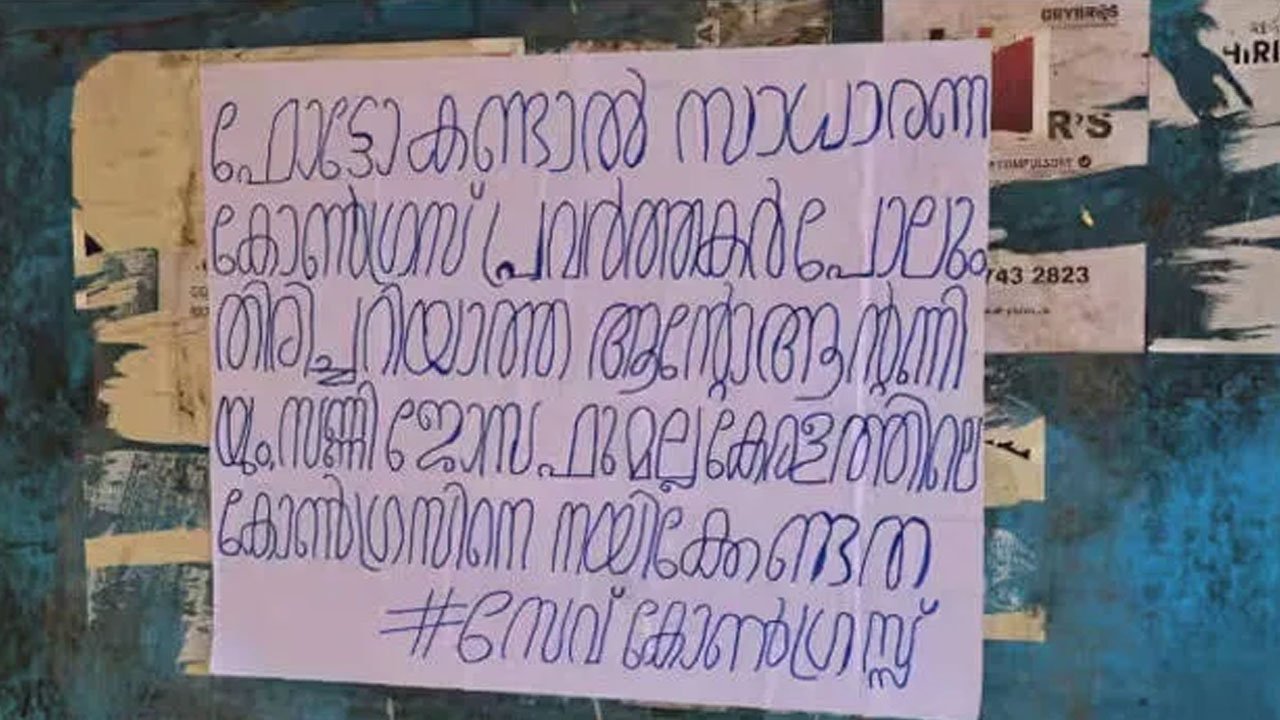 ഫോട്ടോ കണ്ടാൽ സാധാരണ
കോൺഗ്രസ് പ്രവർത്തകർ പോലും
തിരിച്ചറിയാത്ത ആന്റോ ആന്റണി
യും, സണ്ണി ജോസഫുമല്ല കേരളത്തിലെ
കോൺഗ്രസിനെ നയിക്കേണ്ടത
#സേവ് കോൺഗ്രസ്സ്
R'S
COMPULSORY
743 2823
HIRI